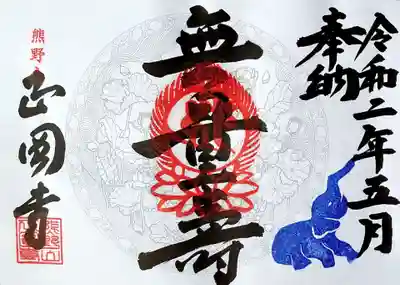 令和二年五月
奉納
無量壽
熊野
正圓寺